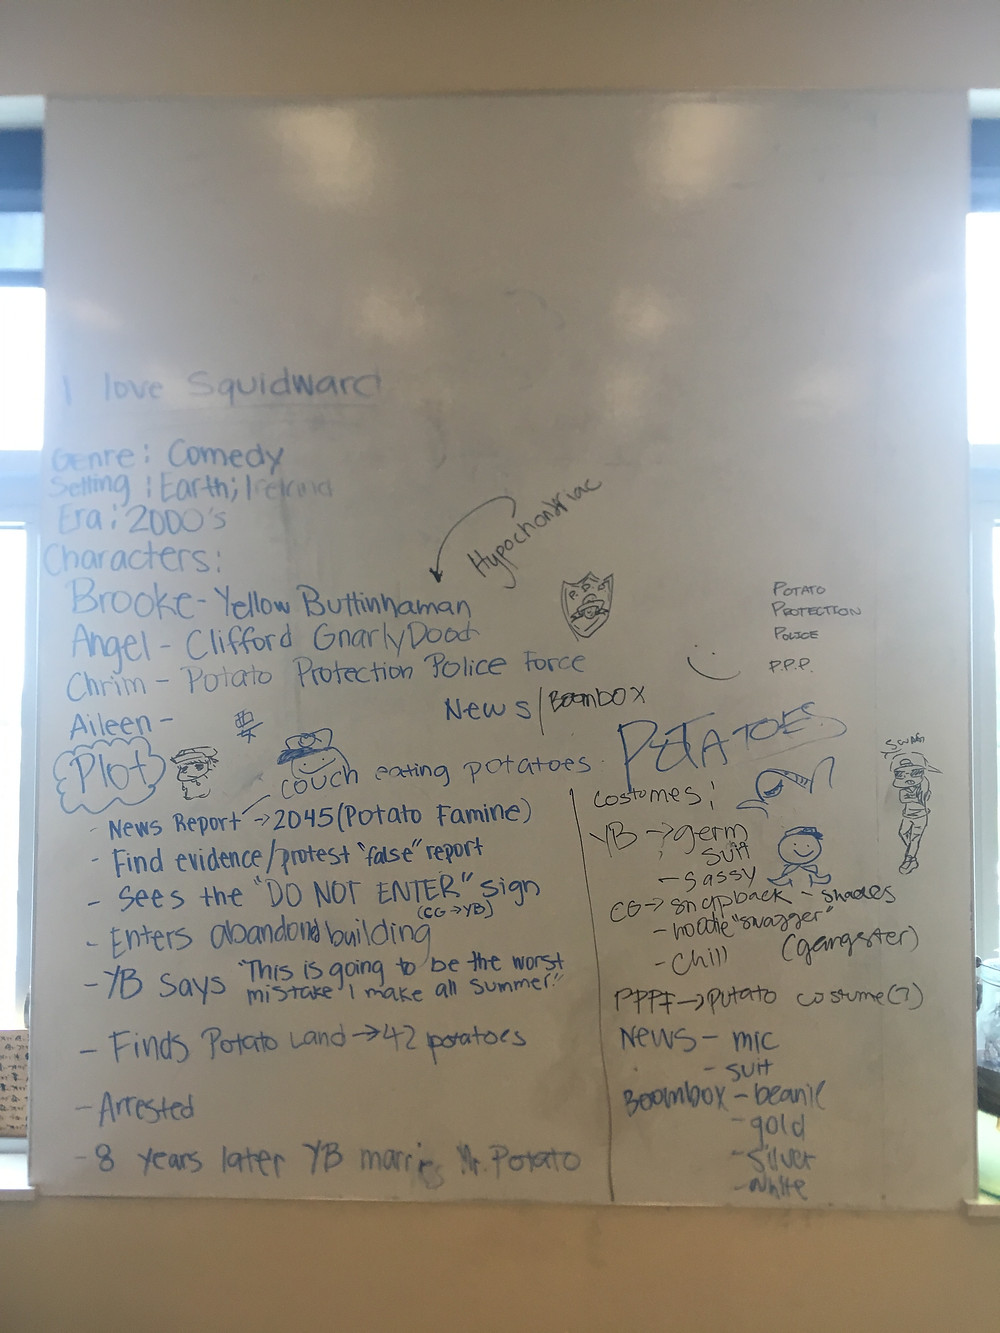 I love Squidward
Genre: Comedy
Setting: Earth; Ireland
Era: 2000's
Characters:
Hypochondriac
Brooke - Yellow Buttinhaman
Angel - Clifford GnarlyDood
Chrim - Potato Protection Police Force
Aileen - News/Boombox
P.P.P.
POTATO
PROTECTION
POLICE
P.P.P.
POTATOES
SWAG
Plot
couch eating potatoes
- News Report → 2045 (Potato Famine)
- Find evidence/protest "false" report
- Sees the "DO NOT ENTER" sign
(CG→YB)
- Enters abandond building
- YB Says "This is going to be the worst
mistake I make all summer."
- Finds Potato Land → 42 potatoes
- Arrested
- 8 years later YB marries Mr. Potato
Costomes:
YB → germ
suit
- sassy
CG → snapback - shades
- hoodie "swagger"
- chill (gangster)
PPPF → potato costume(?)
News - mic
- suit
Boombox - beanie
- gold
- silver
- white